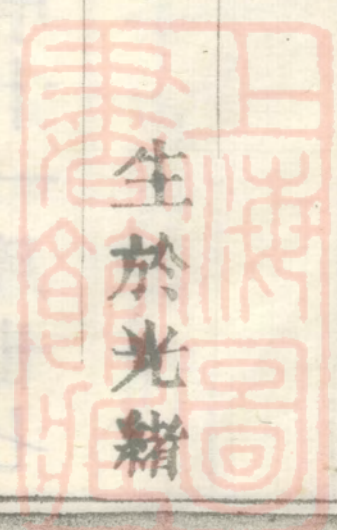 生於光緒
上海圖
書館藏